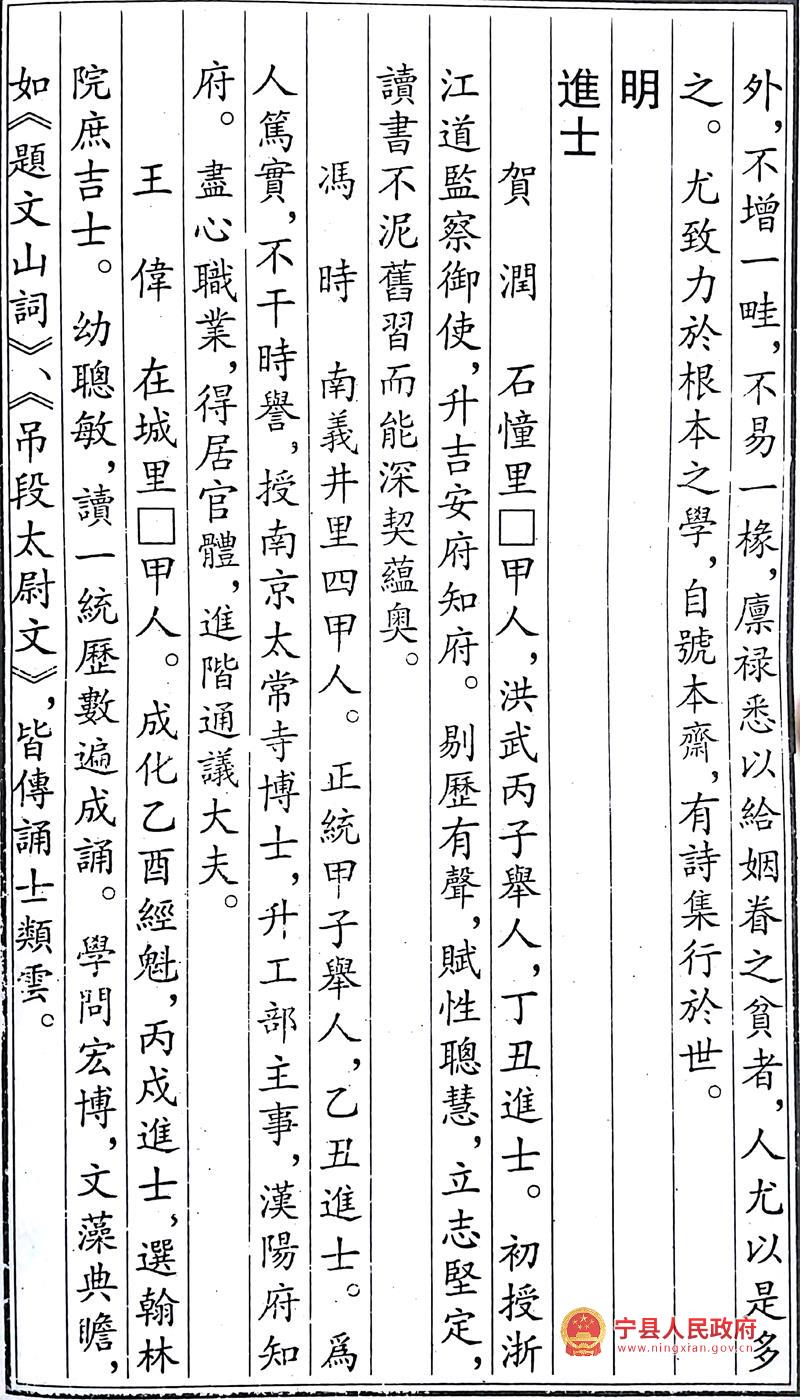 外，不增一畦，不易一椽，廪禄悉以給姻眷之貧者，人尤以是多
之。尤致力於根本之學，自號本齋，有詩集行於世。
明
進士
賀　潤　石憧里□甲人，洪武丙子舉人，丁丑進士。初授浙
江道監察御使，升吉安府知府。剔歷有聲，賦性聰慧，立志堅定，
讀書不泥舊習而能深契蘊奥。
馮　時　南義井里四甲人。正統甲子舉人，乙丑進士。爲
人篤實，不干時譽，授南京太常寺博士，升工部主事，漢陽府知
府。盡心職業，得居官體，進階通議大夫。
王　偉　在城里□甲人。成化乙酉經魁，丙戍進士，選翰林
院庶吉士。幼聰敏，讀一統歷數遍成誦。學問宏博，文藻典瞻，
如《題文山詞》、《吊段太尉文》，皆傳誦士類雲。
宁县人民政府
www.ningxian.gov.cn